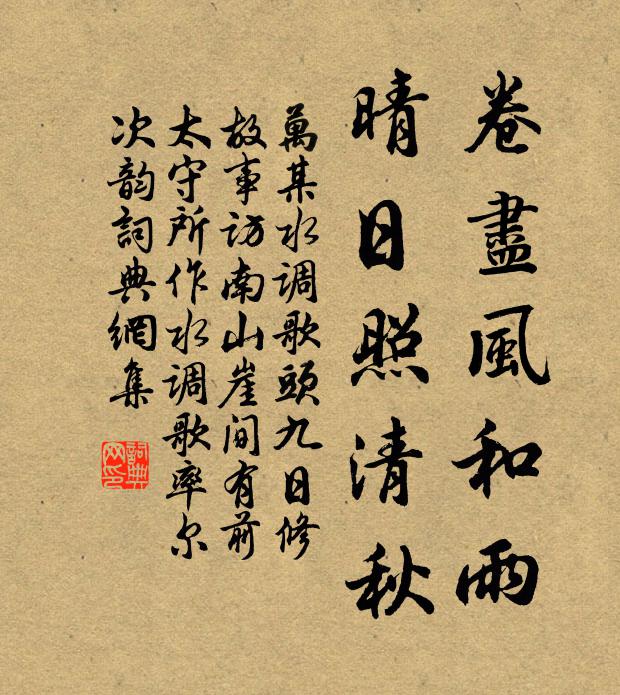 卷盡風和雨
晴日照清秋
萬某水调歌頭九日修
故事访南山崖间有前
太守所作水调歌率尔
次韵詞典網集
詞典
网印